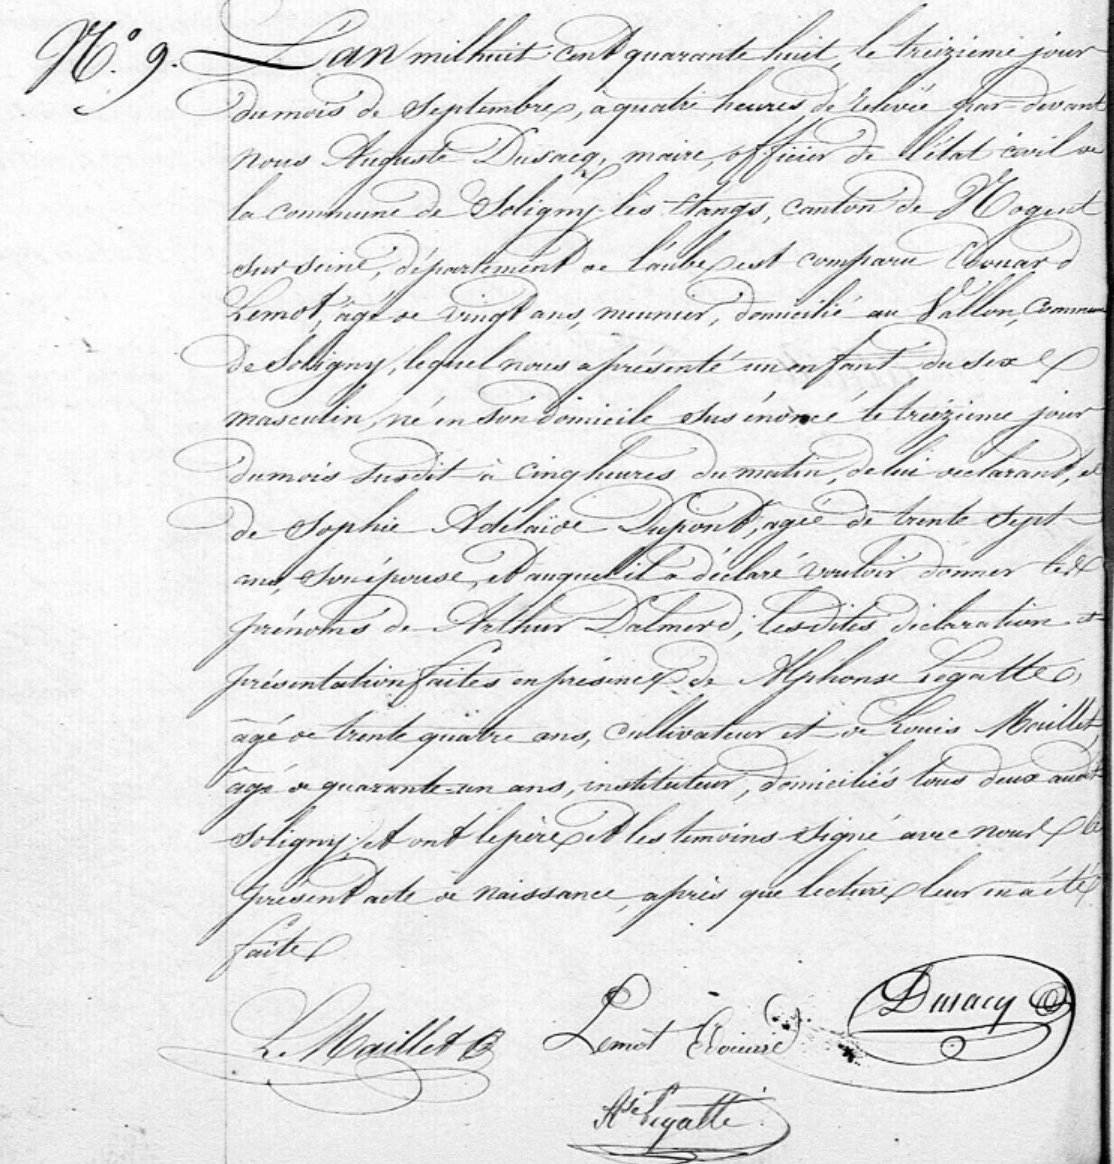 N.° 9. L'an mil huit cent quarante huit, le treizieme jour
du mois de Septembre, à quatre heures de relevée par-devant
nous Auguste Dusacq, maire, officier de l'état civil de
la commune de Soligny-les-Etangs, canton de Nogent
sur Seine, département de l'aube, est comparu Edouard
Lemot, âgé de vingt ans, meunier, domicilié au Vallon, commune
de Soligny, lequel nous a présenté un enfant du sexe
masculin, né en son domicile sus énoncé le treizieme jour
du mois susdit à cinq heures du matin, de lui déclarant, et
de Sophie Adélaïde Dupont, agée de trente sept
ans, son épouse, et auquel il a déclaré vouloir donner les
prénoms de Arthur Dalmerd; lesdites déclaration et
présentation faites en présence de Alphonse Legatte,
âgé de trente quatre ans, cultivateur et de Louis Maillet,
âgé de quarante-un ans, instituteur, domiciliés tous deux audit
Soligny; et ont le père et les temoins signé avec nous le
présent acte de naissance, après que lecture leur en a été
faite
L. Maillet Lemot Edouard Dusacq
Ase Legatte